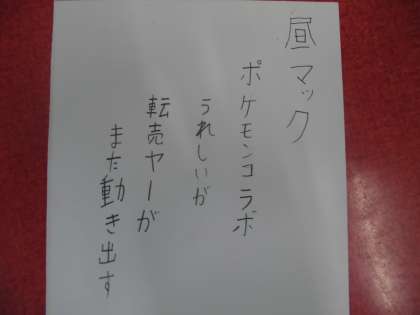 昼マック
ポケモンコラボ
うれしいが
転売ヤーが
また動き出す